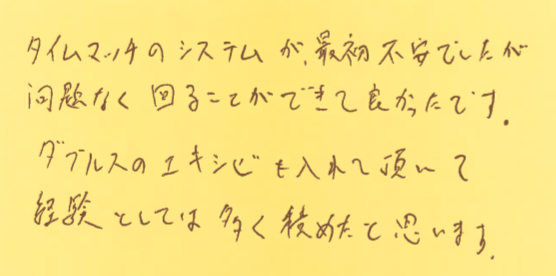 タイムマッチのシステムが、最初不安でしたが
問題なく回ることができて良かったです。
ダブルスのエキシビも入れて頂いて
経験としては多く積めたと思います。